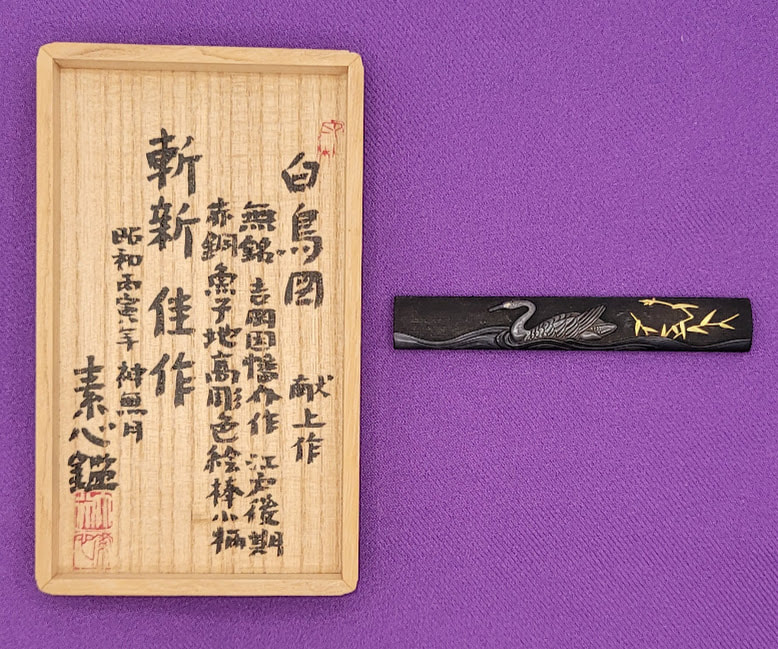 白鳥図 献上作
無銘 吉岡因幡介作 江戸後期
赤銅魚子地高彫色絵棒小柄
斬新佳作
昭和丙寅年 神無月
素心鑑